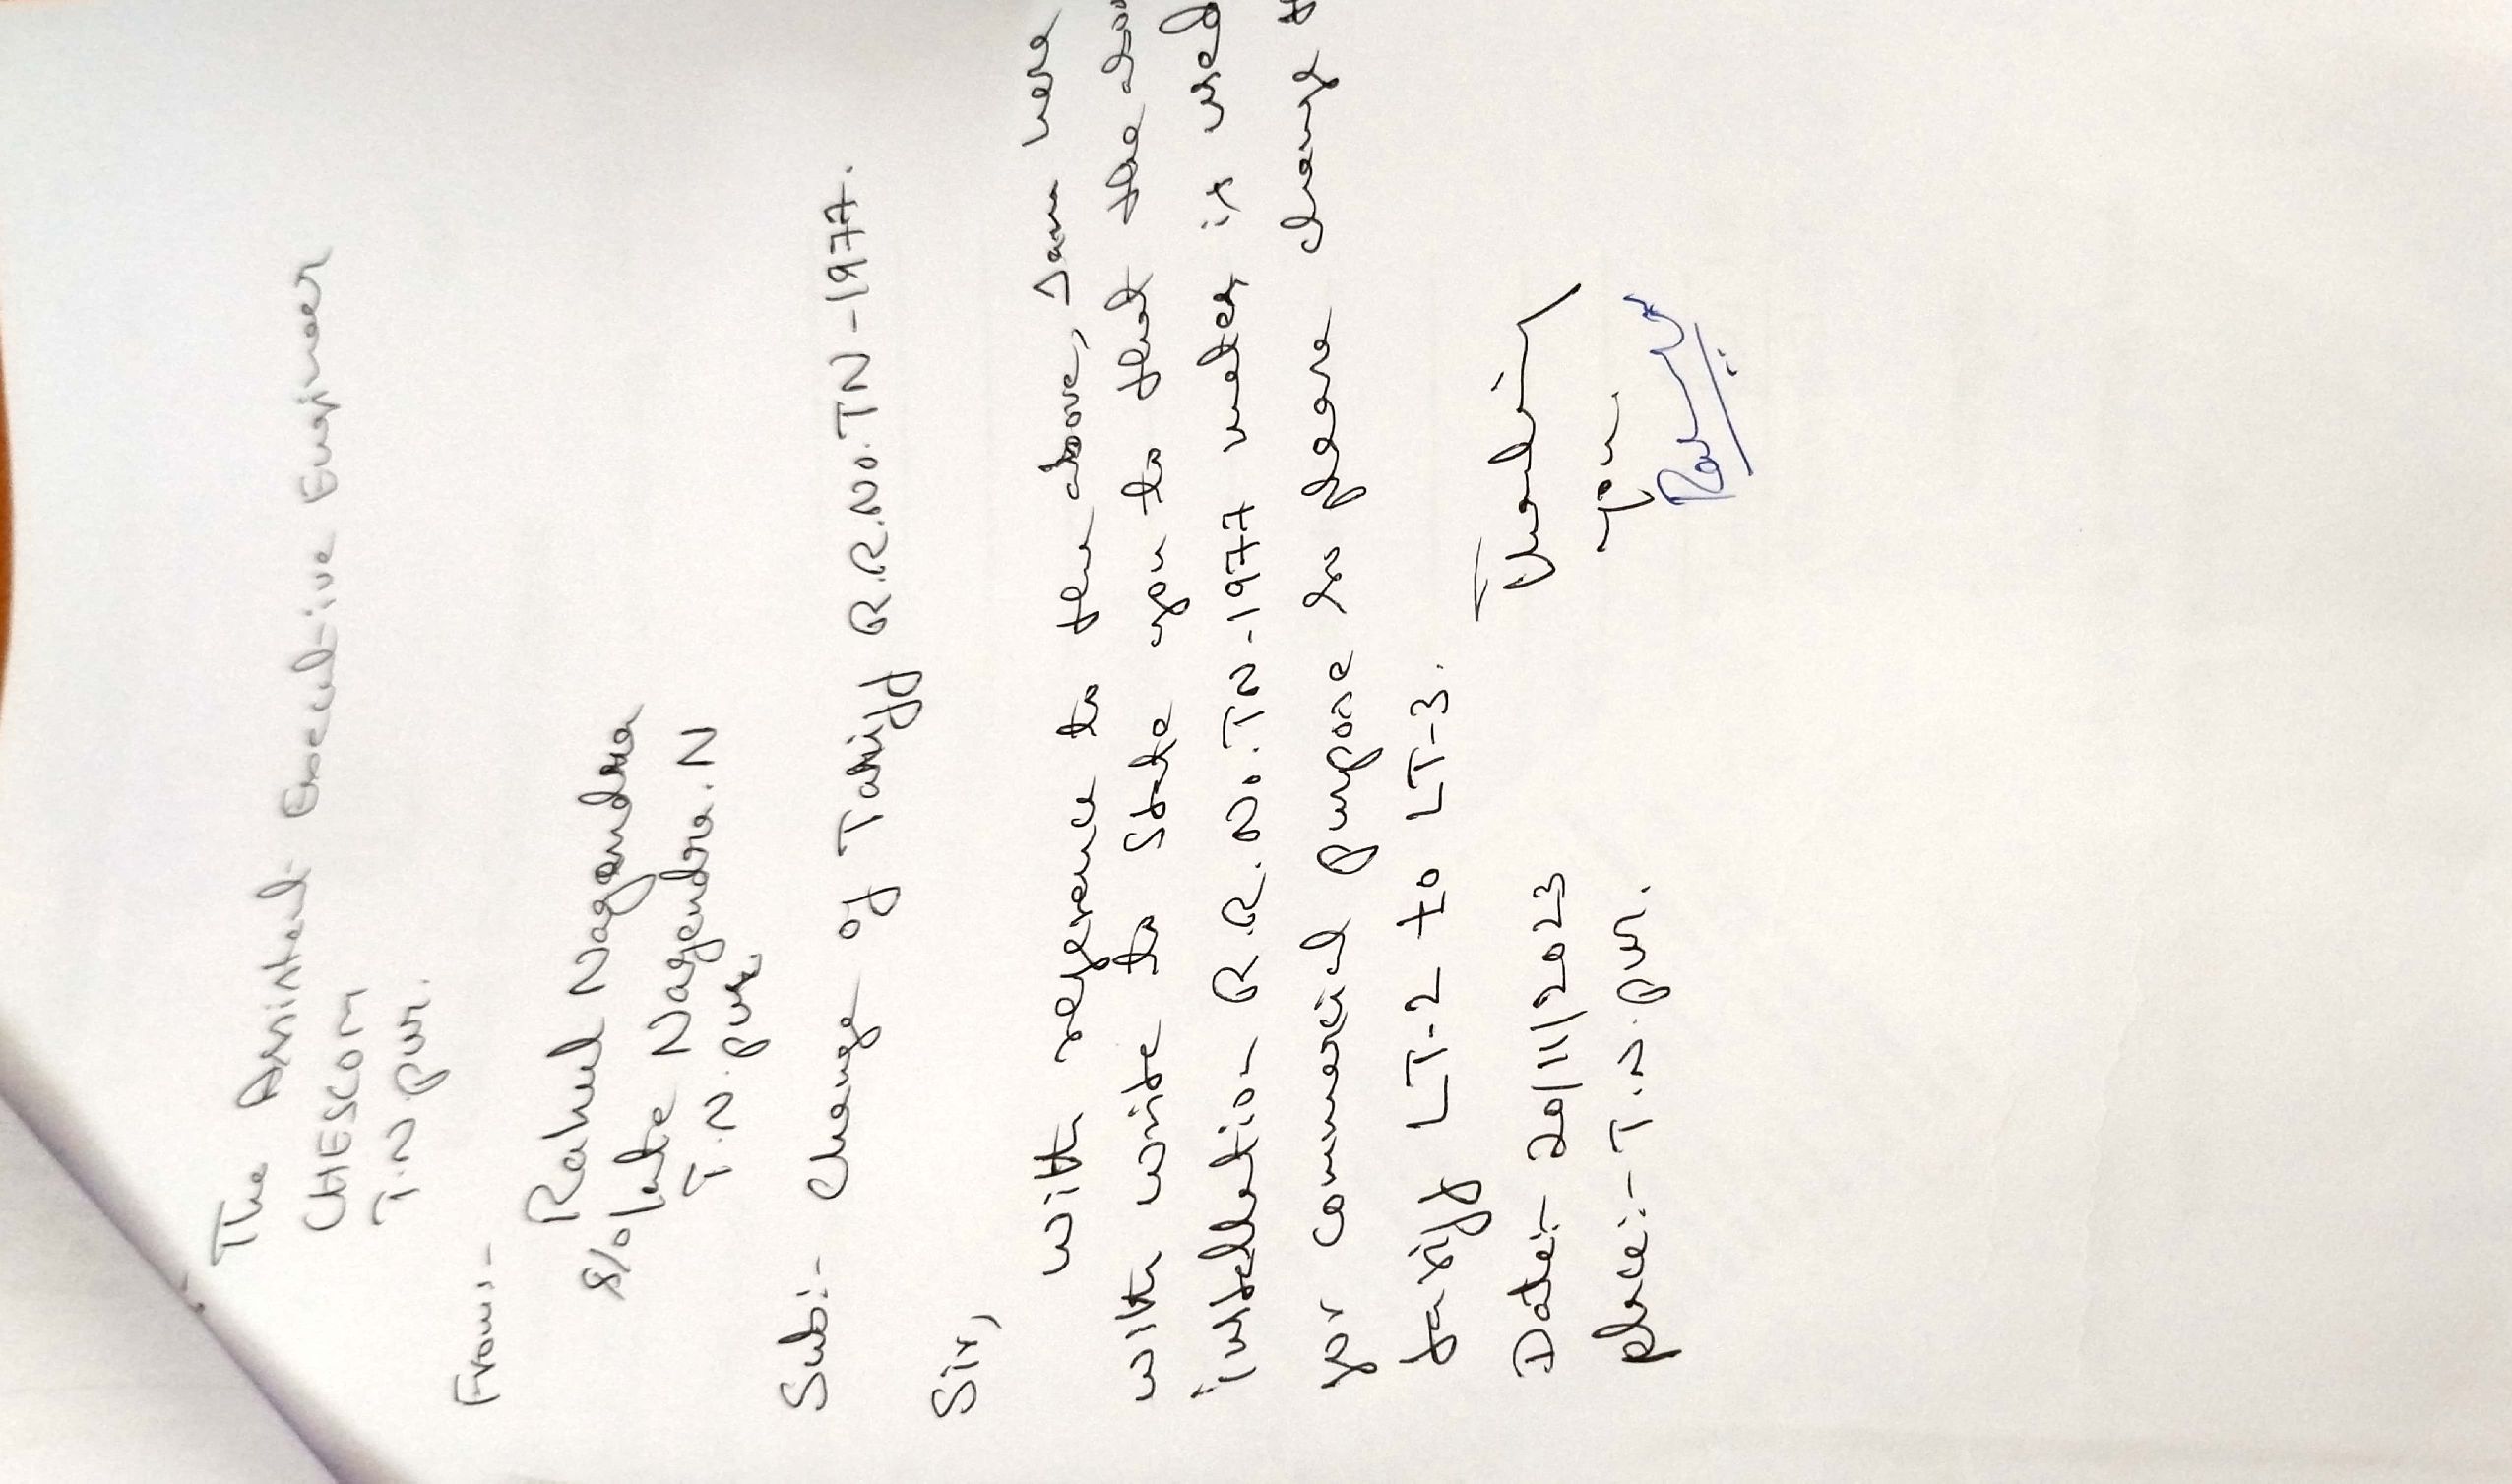 The Assistant Executive Engineer
CHESCOM
T.N Pur.
From:-
Rahul Nagendra
S/o late Nagendra. N
T.N. Pur
Sub:- Change of Tariff R.R.No.TN-1977.
Sir,
with reference to the above, I am here
with write to state you to that the
installation R.R.No.TN-1977 meter is used
for commercial purpose so please change
tariff LT-2 to LT-3.
Date:- 20/11/2023
place:- T.N.Pur.